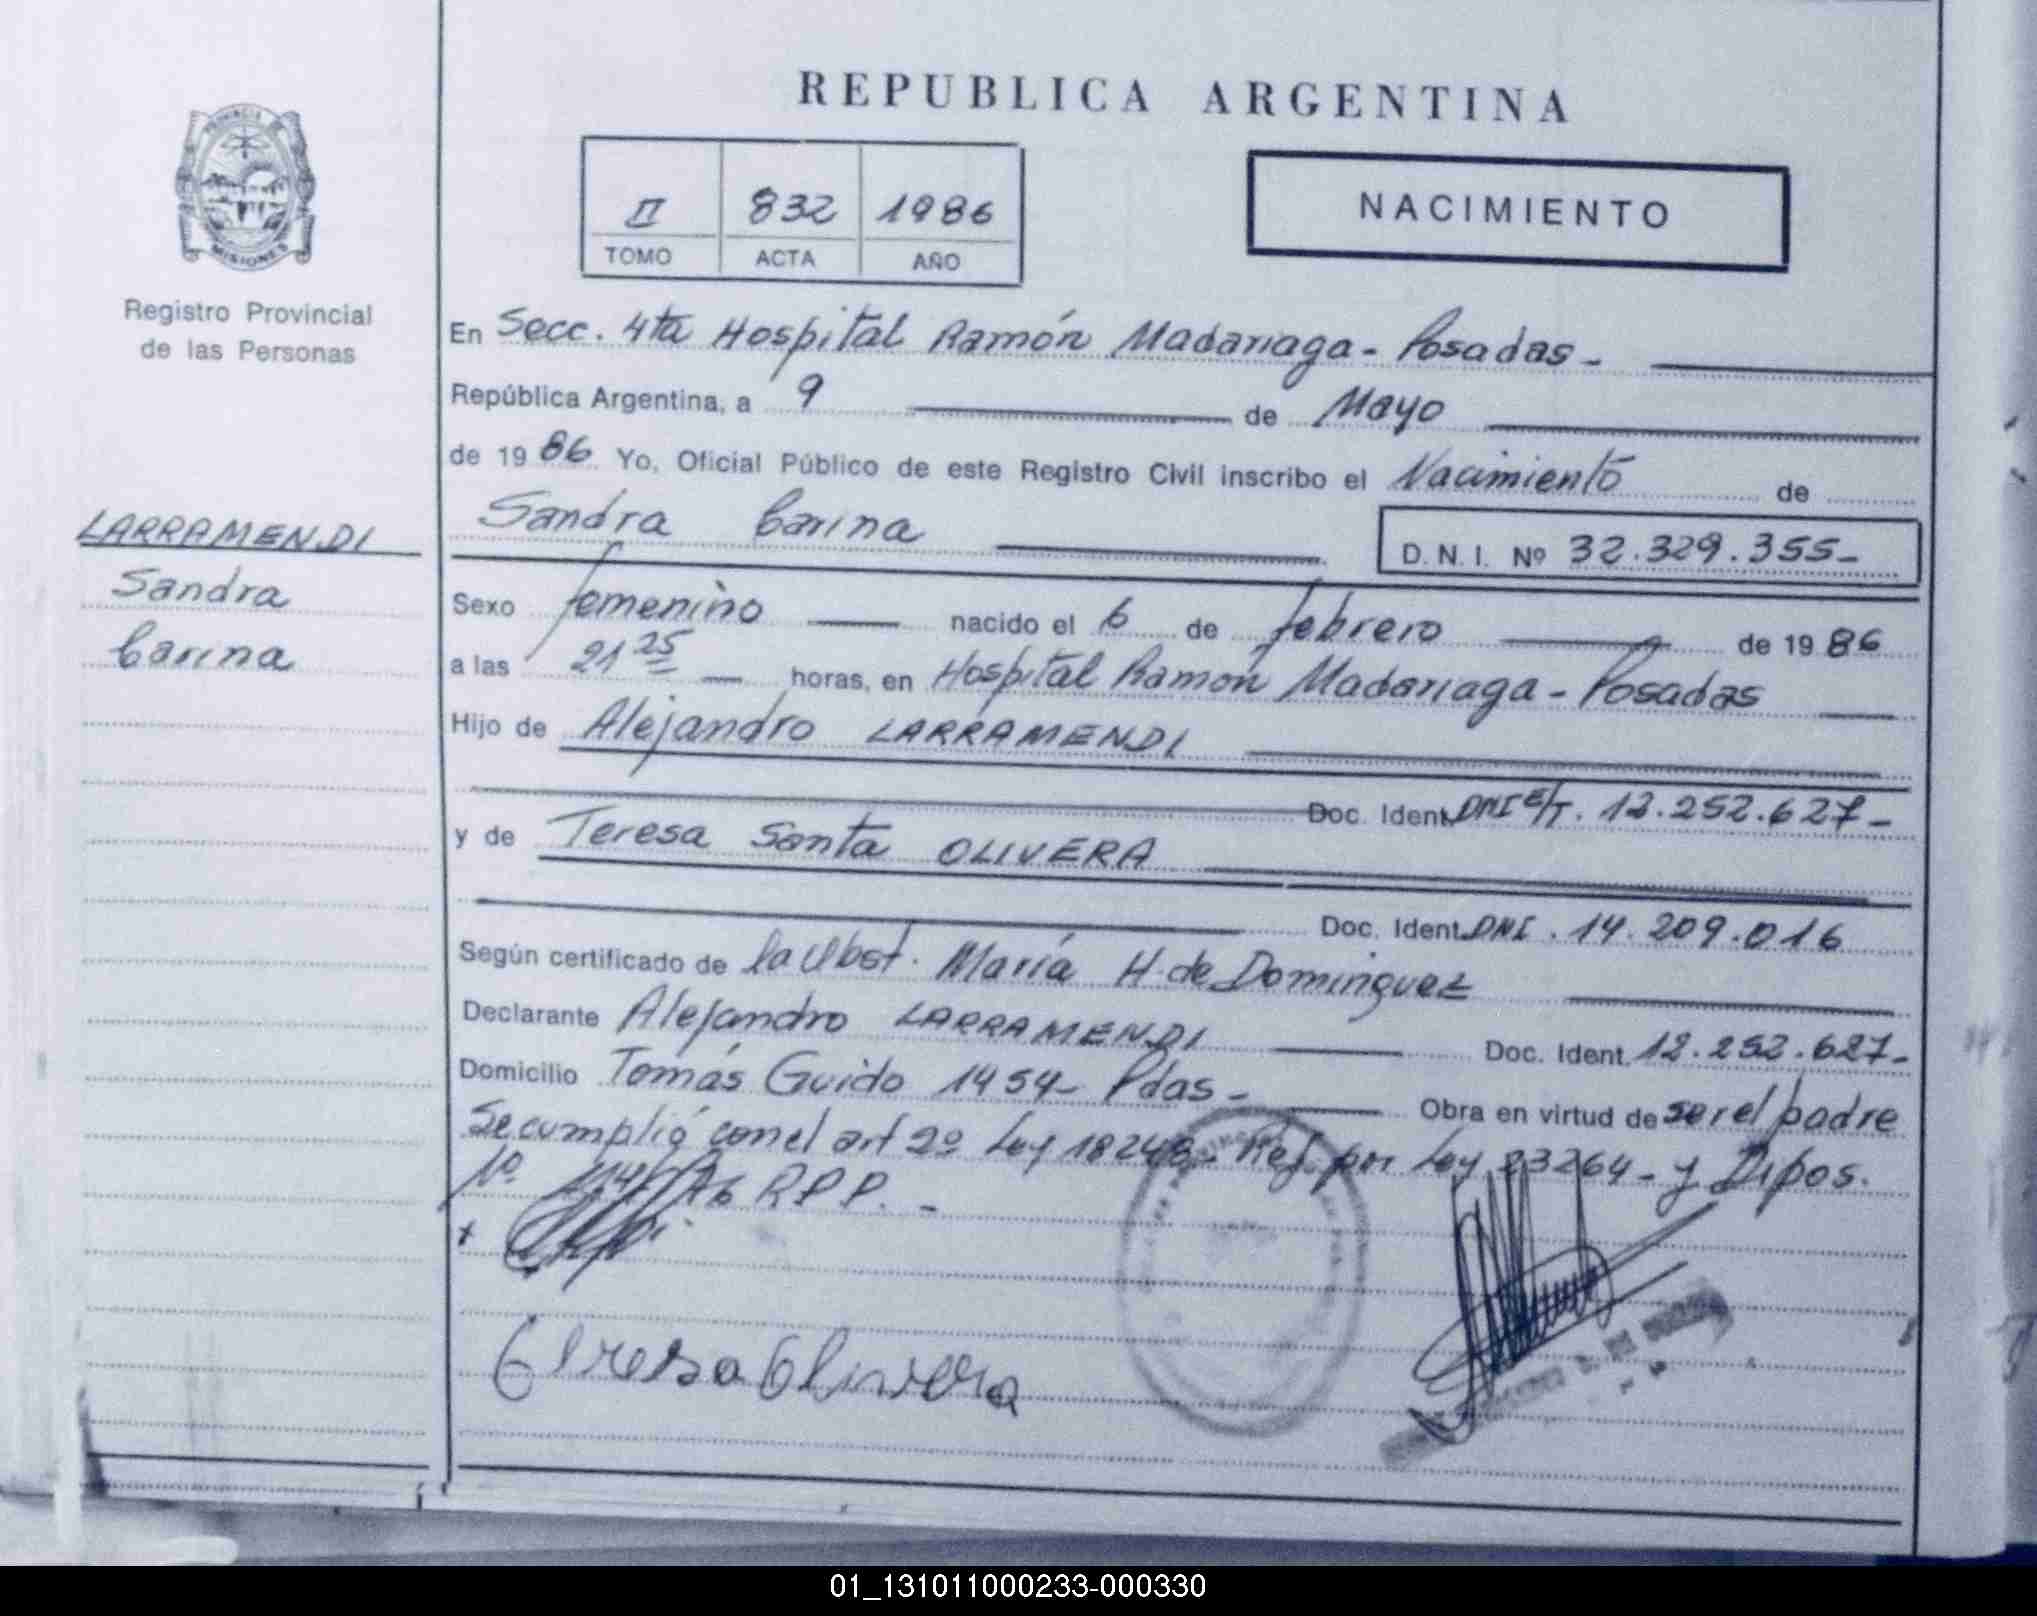 REPUBLICA ARGENTINA
PROVINCIA DE
MISIONES
II 832 1986
TOMO ACTA AÑO
NACIMIENTO
Registro Provincial
de las Personas
LARRAMENDI
Sandra
Carina
En Secc. 4ta Hospital Ramón Madariaga - Posadas -
República Argentina, a 9 de Mayo
de 1986 Yo, Oficial Público de este Registro Civil inscribo el Nacimiento de
Sandra Carina D.N.I. Nº 32.329.355-
Sexo femenino nacido el 6 de febrero de 1986
a las 21 25 horas, en Hospital Ramón Madariaga - Posadas
Hijo de Alejandro LARRAMENDI
Doc. Ident. DNI E/T. 12.252.627-
y de Teresa Santa OLIVERA
Doc. Ident. DNI. 14.209.016
Según certificado de la Obst. María H. de Dominguez
Declarante Alejandro LARRAMENDI Doc. Ident. 12.252.627-
Domicilio Tomás Guido 1454- Pdas- Obra en virtud de ser el padre
Se cumplió con el art 2º Ley 18248- Ref. por Ley 23264- y Dipos.
Nº RPP.-
Teresa Olivera
01_131011000233-000330